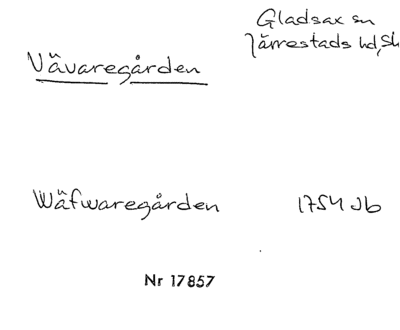 Gladsax sn
Järrestads hd, Sk
Vävaregården
Wäfwaregården 1754 Jb
Nr 17857